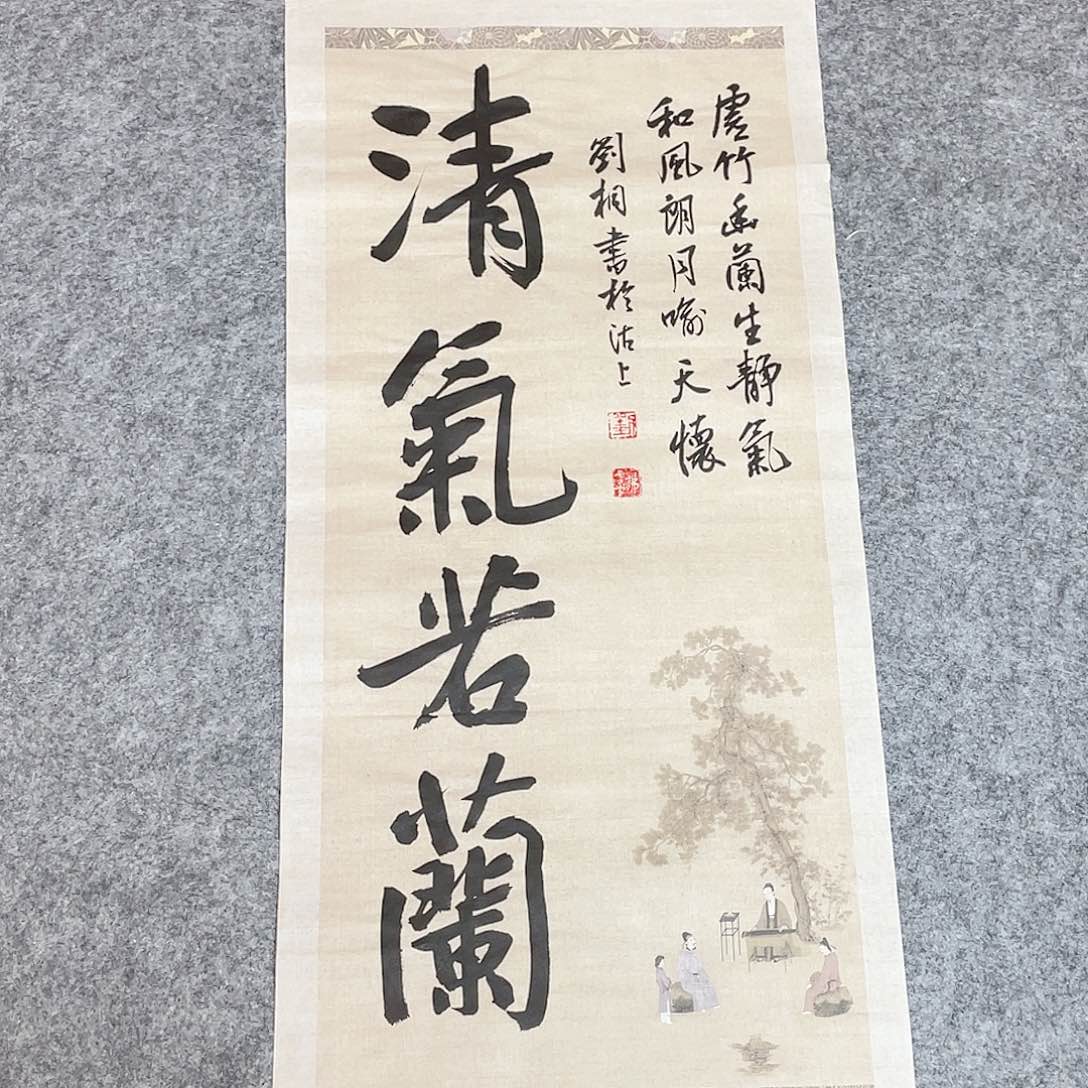 清氣若蘭
虛竹幽蘭生靜氣
和風朗月喻天懷
劉相書於沽上